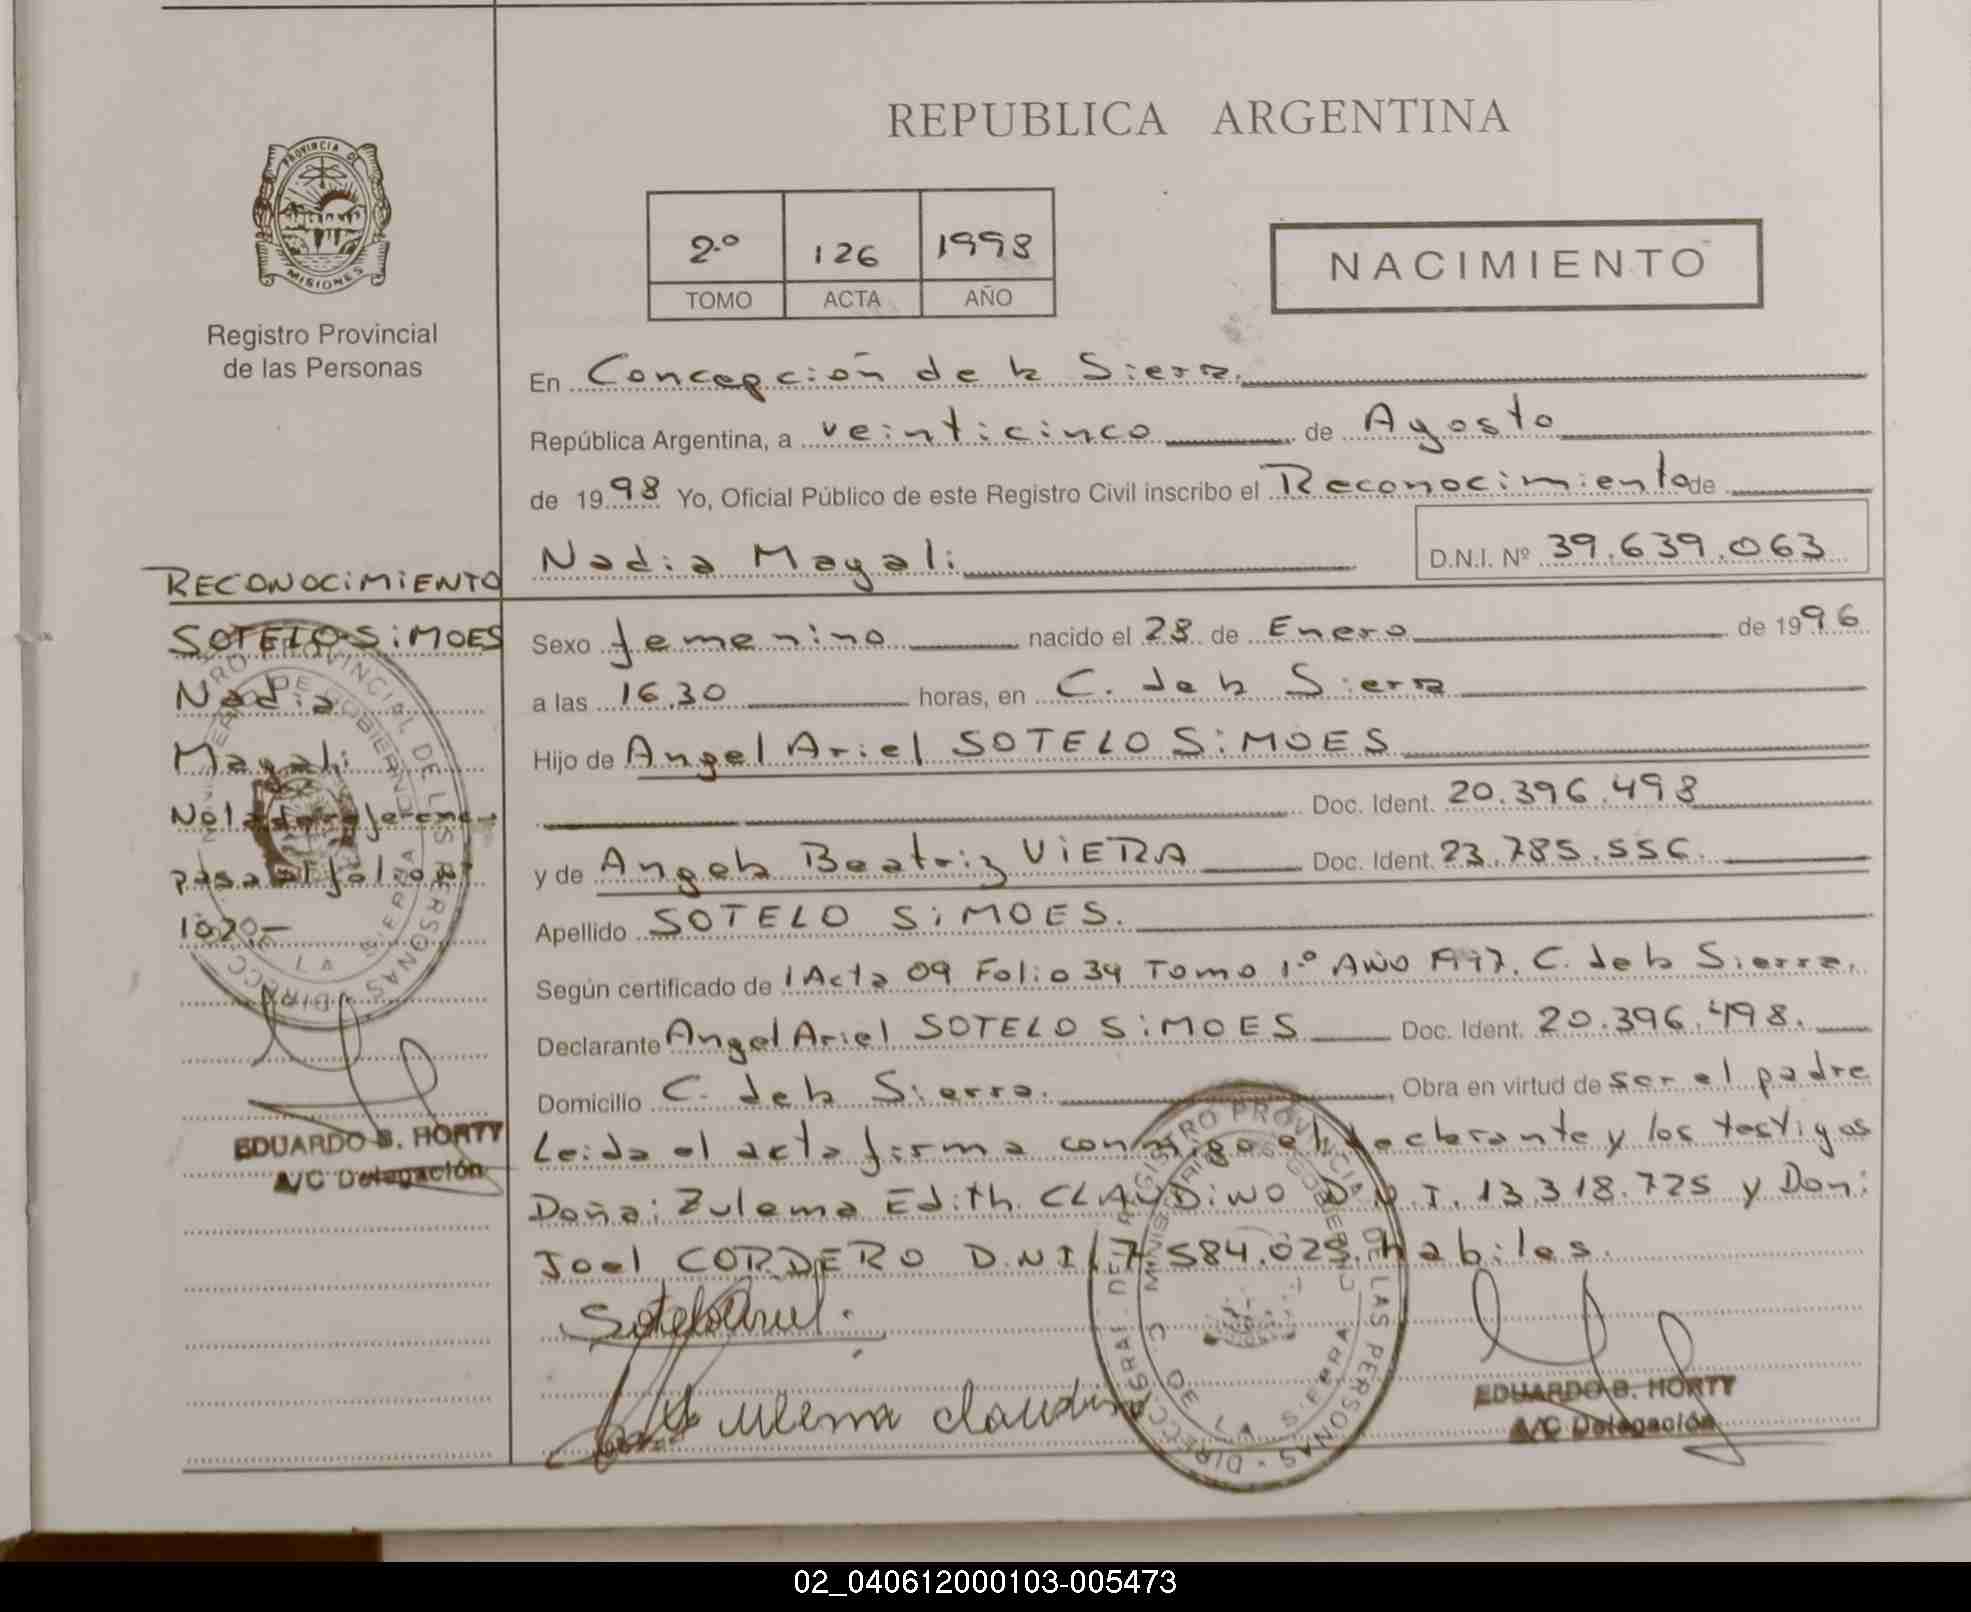 REPUBLICA ARGENTINA
PROVINCIA DE
MISIONES
Registro Provincial
de las Personas
2.º 126 1998
TOMO ACTA AÑO
NACIMIENTO
En Concepción de la Sierra.
República Argentina, a veinticinco de Agosto
de 1998 Yo, Oficial Público de este Registro Civil inscribo el Reconocimiento de
Nadia Magali
D.N.I. Nº 39.639.063
Sexo femenino nacido el 28 de Enero de 1996
a las 16.30 horas, en C. de la Sierra
Hijo de Angel Ariel SOTELO SiMOES
Doc. Ident. 20.396.498
y de Angela Beatriz ViERA Doc. Ident. 23.785.556.
Apellido SOTELO SiMOES.
Según certificado de 1 Acta 09 Folio 34 Tomo 1.º AÑO 1997. C. de la Sierra.
Declarante Angel Ariel SOTELO SiMOES Doc. Ident. 20.396.498.
Domicilio C. de la Sierra. , Obra en virtud de ser el padre
Leida el acta firma conmigo el declarante y los testigos
Doña: Zulema Edith CLAUDiNO D.N.I. 13.318.725 y Don:
Joel CORDERO D.N.I 7.584.029. habiles.
Sotelo Ariel.
Zulema Claudino
EDUARDO B. HORTY
A/C Delegación
RECONOCiMiENTO
SOTELO SiMOES
Nadia
Magali
Nota de referencia
pasa al folio nº
1020.-
EDUARDO B. HORTY
A/C Delegación
DIRECC. GRAL. DEL REGISTRO PROVINCIAL DE LAS PERSONAS
MINISTERIO DE GOBIERNO
C. DE LA SIERRA
02_040612000103-005473